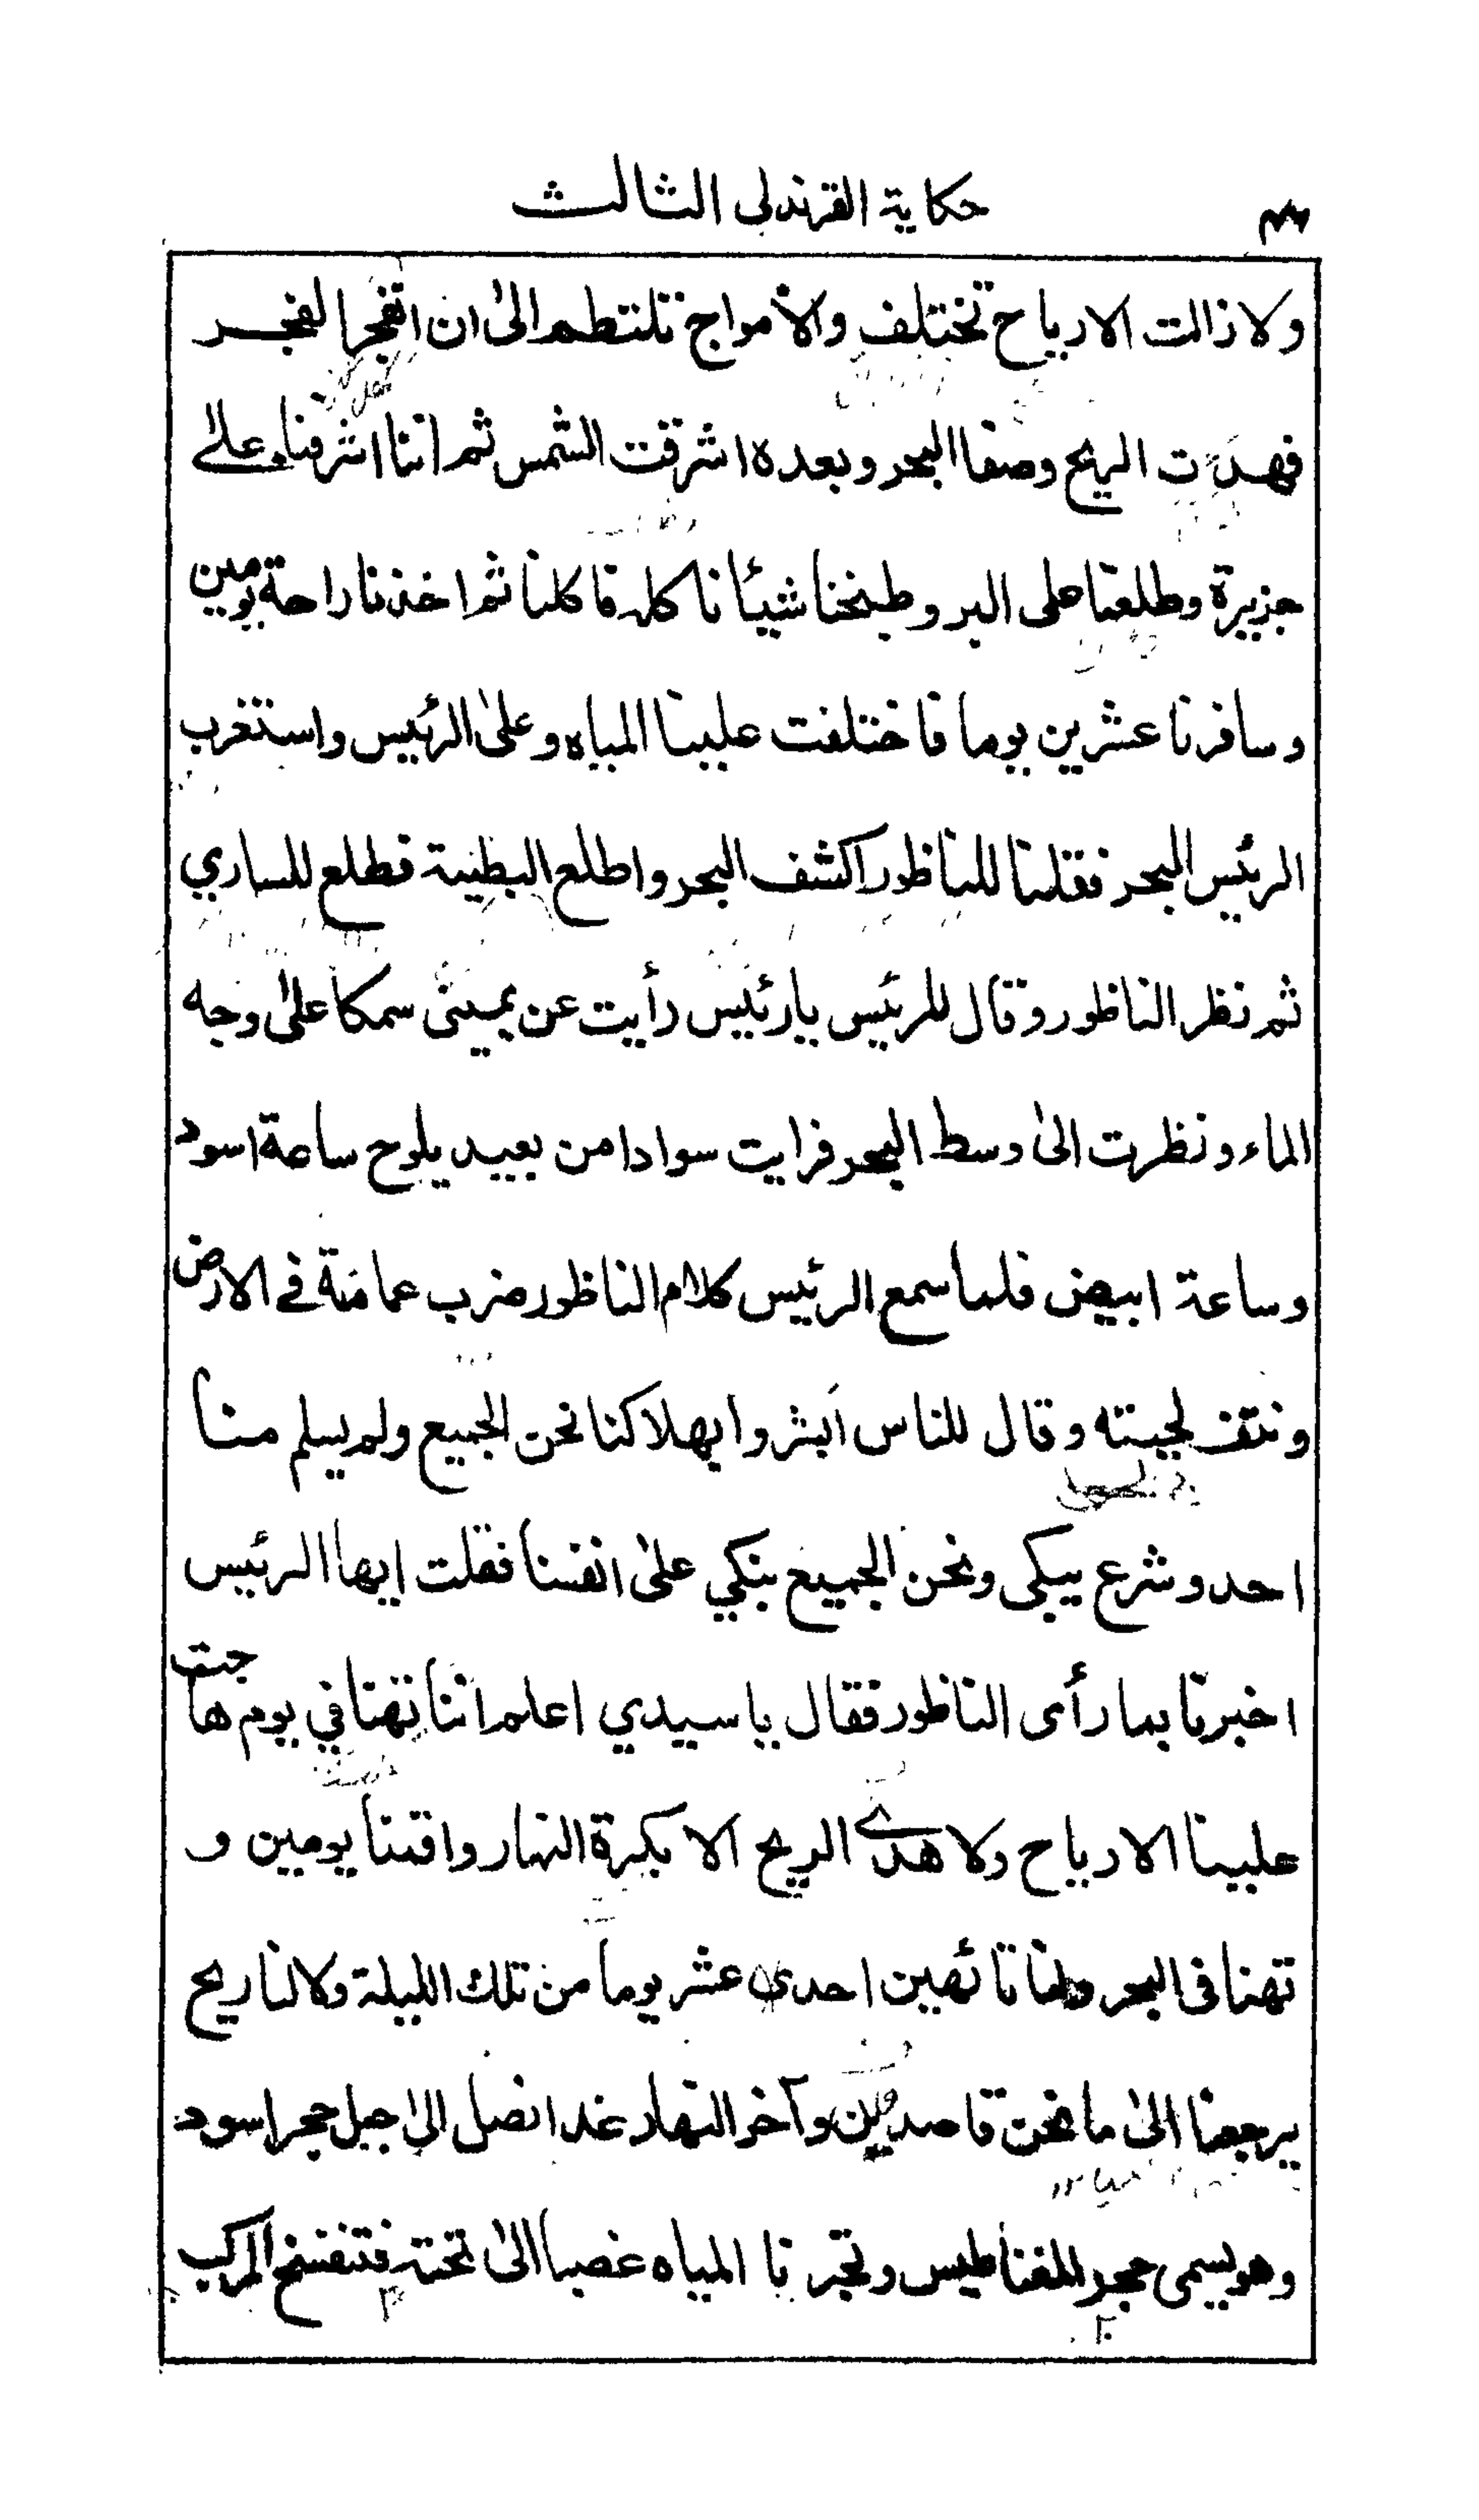 حكاية القرندلي الثالث
ولا زالت الارياح تختلف والأمواج تلتطم الىٰ ان انفجر الفجر
فهدءت الريح وصفا البحر وبعده اشرقت الشمس ثم اننا اشرفنا علىٰ
جزيرة وطلعنا على البر وطبخنا شيئا ناكله فاكلنا ثم اخذنا راحة يومين
وسافرنا عشرين يوما فاختلفت علينا المياه وعلىٰ الرئيس واستغرب
الرئيس البحر فقلنا للناظور اكشف البحر واطلع البطنية فطلع للساري
ثم نظر الناظور وقال للرئيس يا رئيس رأيت عن يميني سمكا علىٰ وجه
الماء ونظرت الىٰ وسط البحر فرايت سوادا من بعيد يلوح ساعة اسود
وساعة ابيض فلما سمع الرئيس كلام الناظور ضرب عمامته في الارض
ونتف لحيته وقال للناس ابشروا بهلاكنا نحن الجميع ولم يسلم منا
احد وشرع يبكى ونحن الجميع نبكي علىٰ انفسنا فقلت ايها الرئيس
اخبرنا بما رأى الناظور فقال يا سيدي اعلم اننا تهنا في يوم هاجت
علينا الارياح ولا هدى الريح الا بكرة النهار واقمنا يومين و
تهنا فى البحر ولنا تائهين احدى عشر يوما من تلك الليلة ولا لنا ريح
يرجعنا الىٰ ما نحن قاصدين وآخر النهار غدا نصل الىٰ جبل حجر اسود
وهو يسمى حجر المغناطيس وتجرنا المياه غصبا الىٰ تحته فتنفسخ المركب